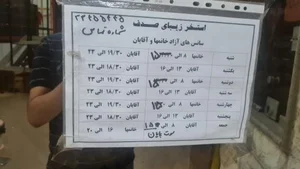 ۲۲۲۵۵۴۴۵
شماره تماس
استخر زیبای صدف
سانس های آزاد خانمها و آقایان
شنبه خانمها ۸ الی ۱۵ آقایان ۱۹/۳۰ الی ۲۳
یکشنبه آقایان ۱۳ الی ۱۶ آقایان ۱۸/۳۰ الی ۲۳
دوشنبه خانمها ۸ الی ۱۵ آقایان ۱۹/۳۰ الی ۲۳
سه شنبه آقایان ۱۳ الی ۱۶ آقایان ۱۸/۳۰ الی ۲۳
چهارشنبه خانمها ۸ الی ۱۵ آقایان ۱۹/۳۰ الی ۲۳
پنجشنبه آقایان ۱۳ الی ۱۶ آقایان ۱۸/۳۰ الی ۲۳
جمعه آقایان ۸ الی ۱۵ خانمها ۱۶ الی ۲۰